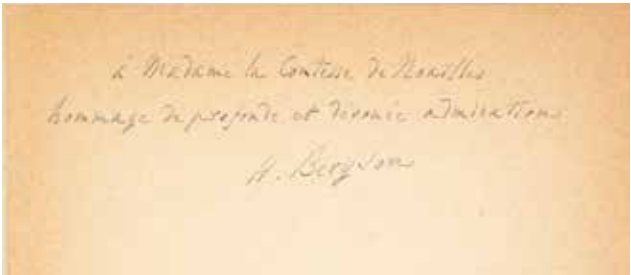 à Madame la Comtesse de Noailles
hommage de profonde et dévouée admiration
H. Bergson